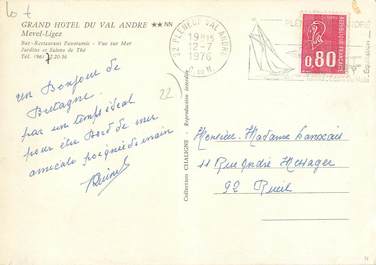 GRAND HOTEL DU VAL ANDRE ★★NN
Mevel-Ligez
Bar - Restaurant Panoramic - Vue sur Mer
Jardins et Salons de Thé
Tél. (96) 72.20-56
22 PLENEUF VAL ANDRE
19H15
12-7
1976
0,80
POSTES
FRANCE
un Bonjour de
Bretagne.
par un temps idéal
pour être Bord de mer
amicale poignée de main
22)
Collection CHALIGNE - Reproduction interdite
Monsieur Madame Lanocari
11 Rue André Messager
92 Rueil